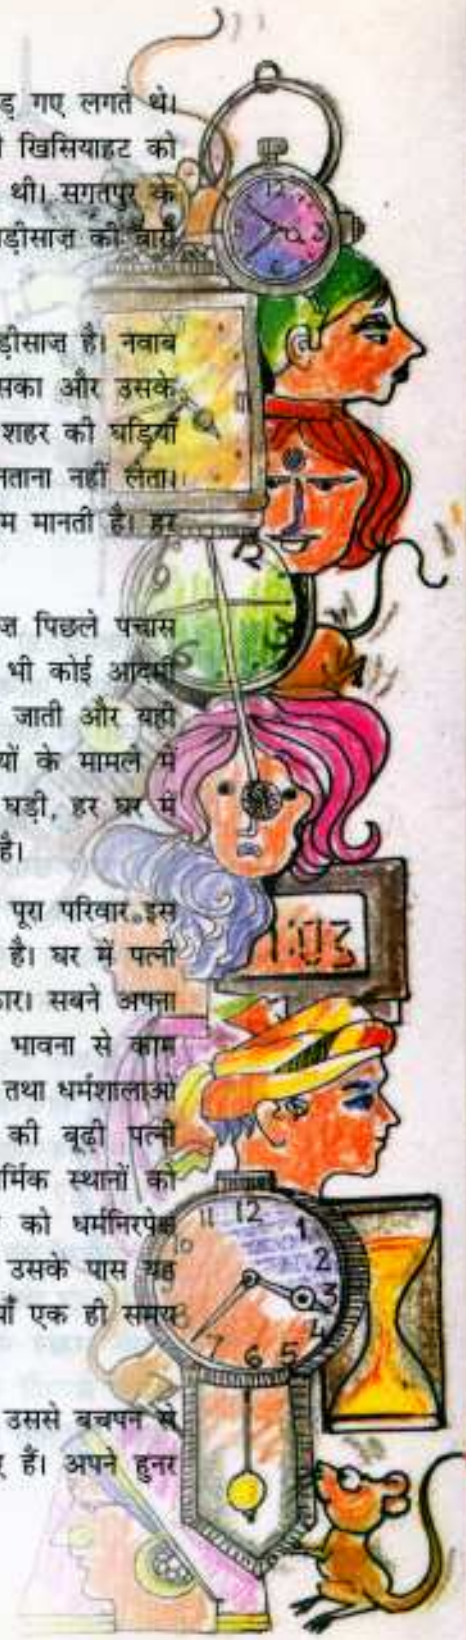 ड़ गए लगते थे।
खिसियाहट को
थी। सगतपुर के
ड़ीसाज़ की बारी
ड़ीसाज़ है। नवाब
सका और उसके
शहर की घड़ियाँ
नताना नहीं लेता।
म मानती है। हर
ज़ पिछले पचास
भी कोई आदमी
जाती और यही
यों के मामले में
घड़ी, हर घर में
है।
पूरा परिवार इस
है। घर में पत्नी
कार। सबने अपना
भावना से काम
तथा धर्मशालाओं
की बूढ़ी पत्नी
र्मिक स्थानों को
को धर्मनिरपेक्ष
उसके पास यह
याँ एक ही समय
उससे बचपन से
हैं। अपने हुनर
12
3
6
12
9
1:03
11 12 1
10 2
3
4
7 6 5